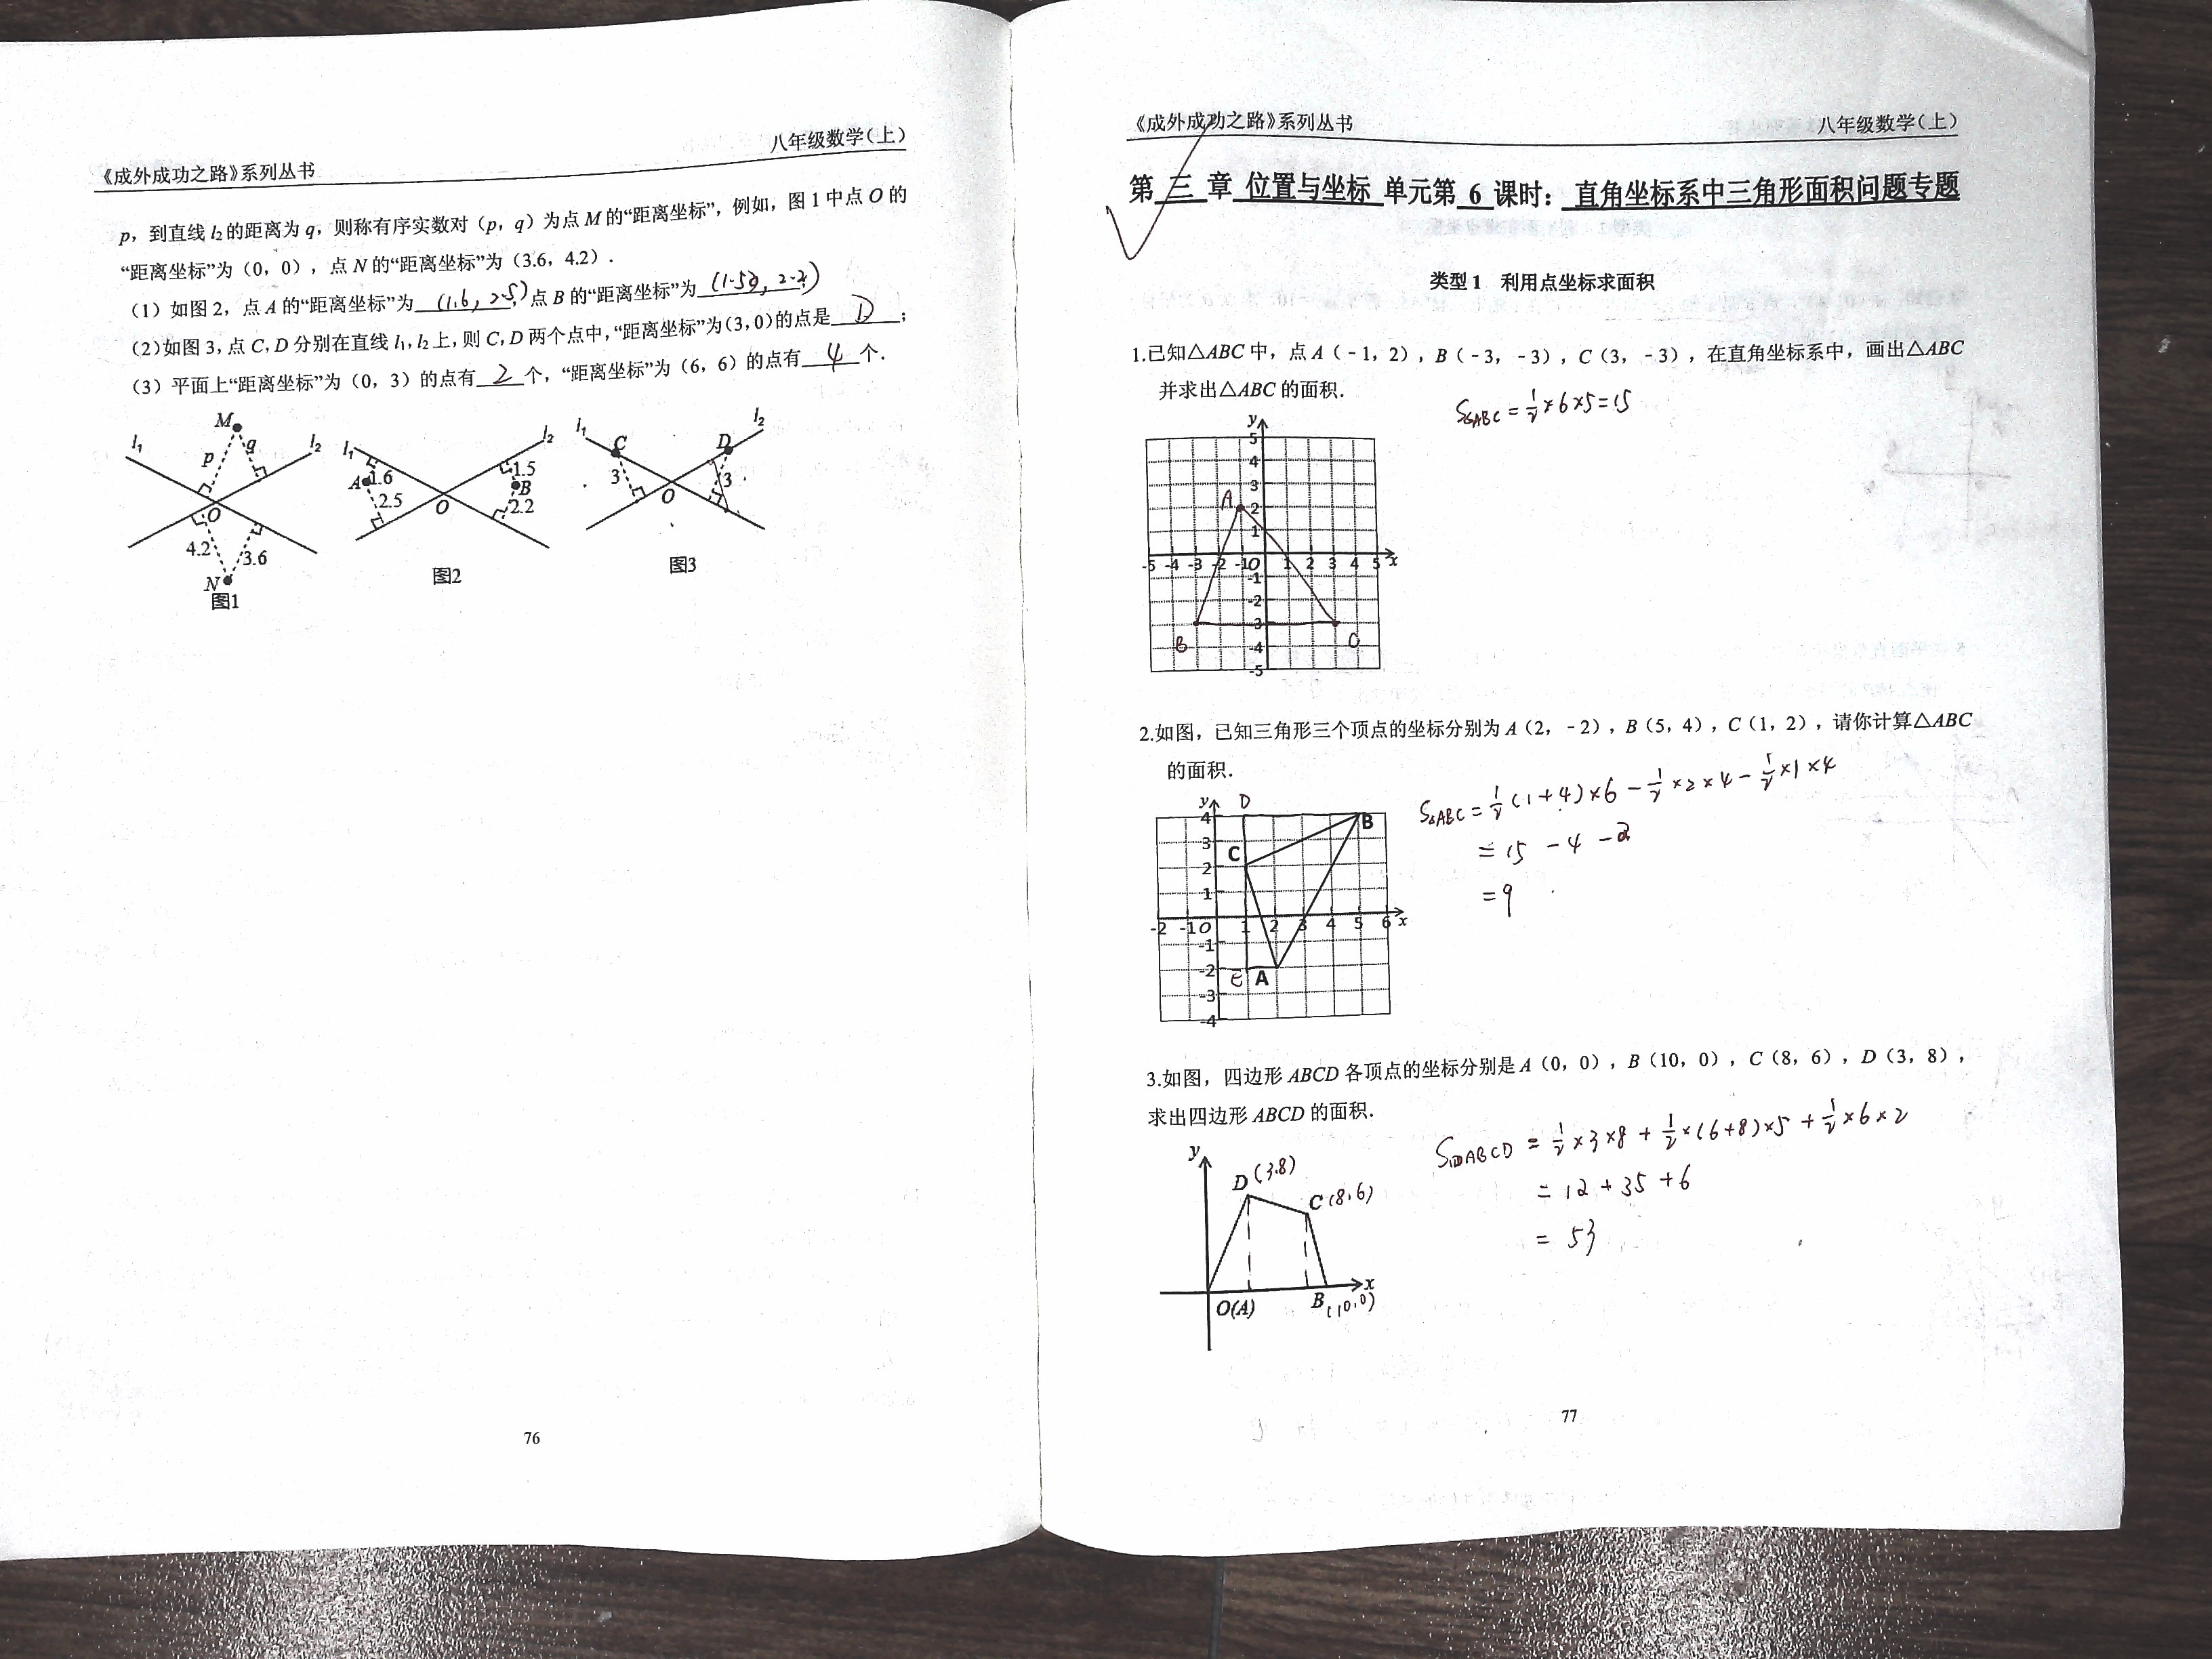 《成外成功之路》系列丛书 八年级数学（上）
p，到直线 l₂的距离为 q，则称有序实数对（p，q）为点 M 的“距离坐标”，例如，图 1 中点 O 的
“距离坐标”为（0，0），点 N 的“距离坐标”为（3.6，4.2）.
（1）如图 2，点 A 的“距离坐标”为 (1.6, 2.5) 点 B 的“距离坐标”为
（2）如图 3，点 C，D 分别在直线 l₁，l₂ 上，则 C，D 两个点中，“距离坐标”为（3，0）的点是 D ；
（3）平面上“距离坐标”为（0，3）的点有 2 个，“距离坐标”为（6，6）的点有 4 个.
M
l₁ p q l₂
O
4.2 3.6
N
图1
l₁ l₂
A 1.6 1.5 B
2.5 O 2.2
图2
l₁ C D l₂
3 O 3
图3
76
《成外成功之路》系列丛书 八年级数学（上）
第 三 章 位置与坐标 单元第 6 课时： 直角坐标系中三角形面积问题专题
类型 1 利用点坐标求面积
1.已知△ABC 中，点 A（-1，2），B（-3，-3），C（3，-3），在直角坐标系中，画出△ABC
并求出△ABC 的面积.
S△ABC = 1/2 × 6 × 5 = 15
y
5
4
3
A 2
1
-5 -4 -3 -2 -1 O 1 2 3 4 5 x
-1
-2
-3
B -4 C
-5
2.如图，已知三角形三个顶点的坐标分别为 A（2，-2），B（5，4），C（1，2），请你计算△ABC
的面积.
S△ABC = 1/2 (1+4)×6 - 1/2 ×2×4 - 1/2 ×1×4
= 15 - 4 - 2
= 9
y D
4 B
3
C
2
1
-2 -1 O 1 2 3 4 5 6 x
-1
-2 E A
-3
-4
3.如图，四边形 ABCD 各顶点的坐标分别是 A（0，0），B（10，0），C（8，6），D（3，8），
求出四边形 ABCD 的面积.
ABCD = 1/2 ×3×8 + 1/2 ×(6+8)×5 + 1/2 ×6×2
= 12 + 35 + 6
= 53
y
D (3.8)
C (8,6)
x
O(A) B (10,0)
77